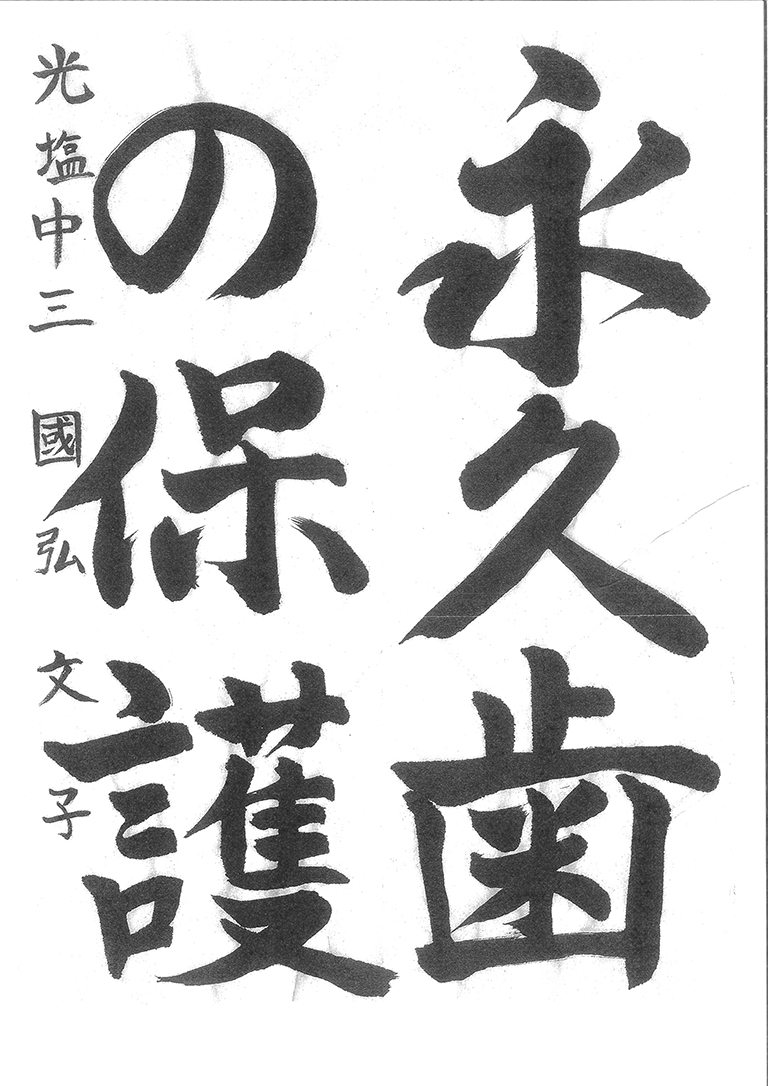 永久歯
の保護
光塩中三 國弘文子